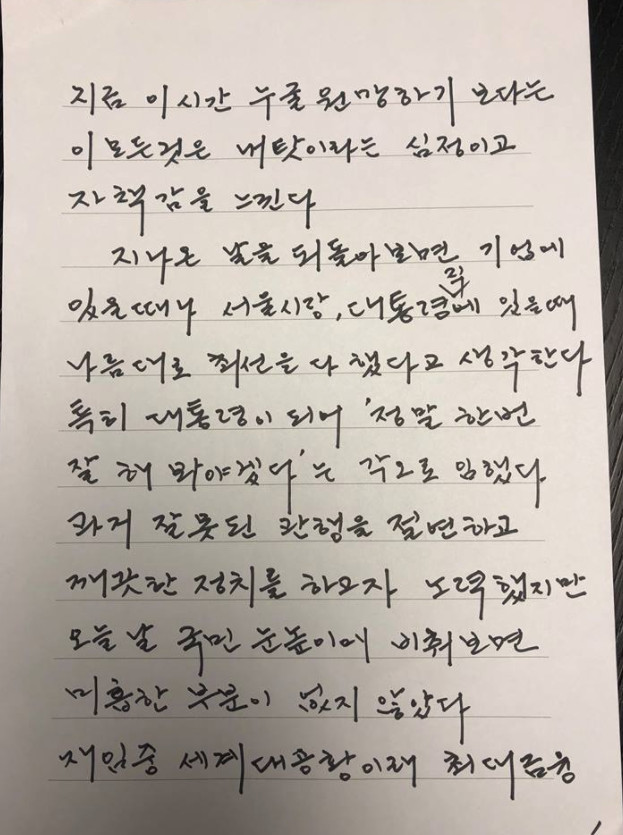 지금 이시간 누굴 원망하기 보다는
이 모든것은 내탓이라는 심정이고
자책감을 느낀다
지나온 날을 되돌아보면 기업에
있을때나 서울시장, 대통령직에 있을때
나름대로 최선을 다 했다고 생각한다
특히 대통령이 되어 '정말 한번
잘 해 봐야겠다'는 각오로 임했다
과거 잘못된 관행을 절연하고
깨끗한 정치를 하고자 노력했지만
오늘 날 국민 눈높이에 비춰보면
미흡한 부분이 없지 않았다
재임중 세계대공황이래 최대금융